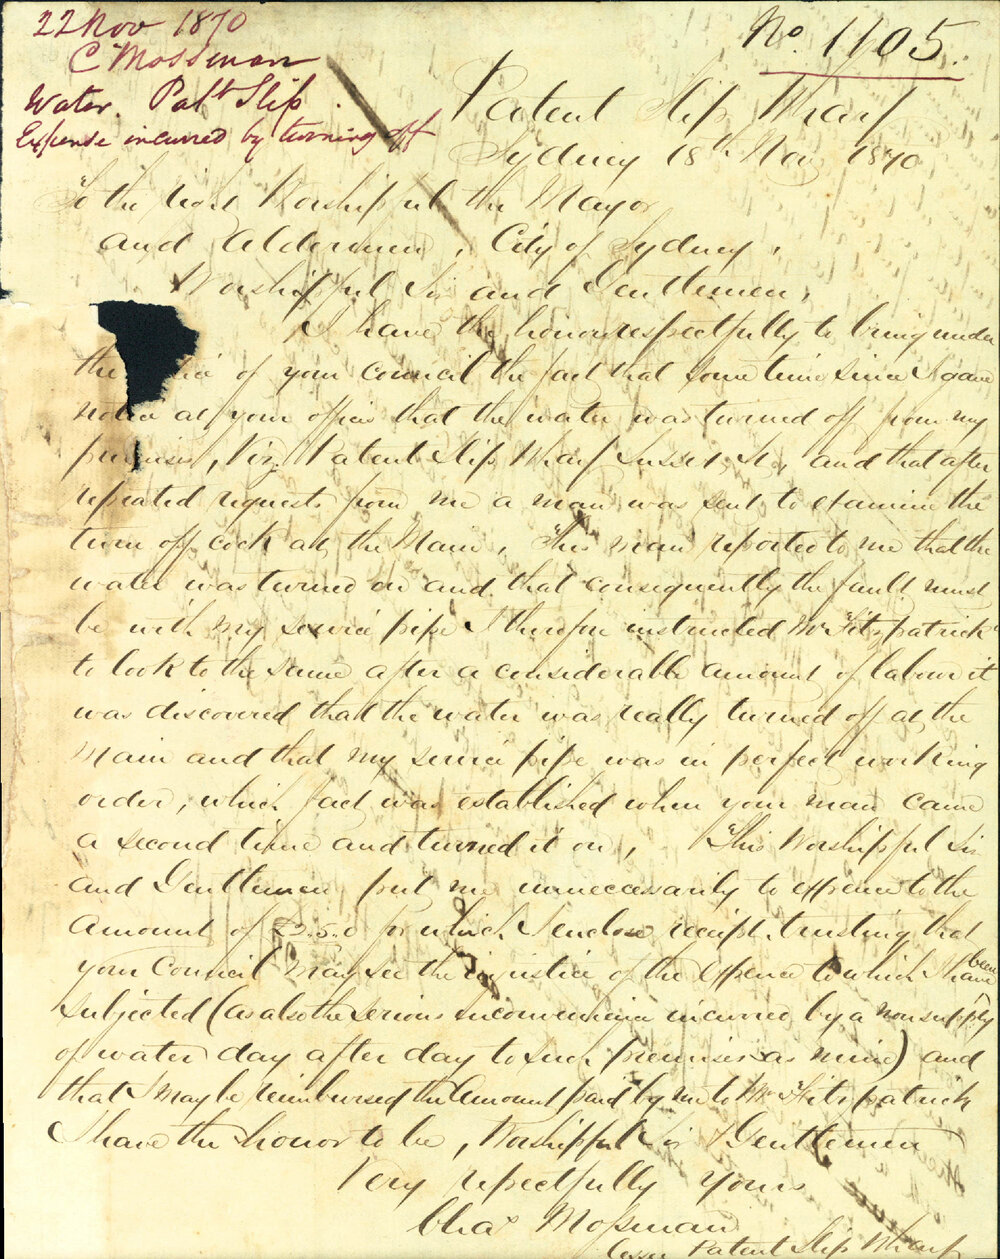 22 Nov 1870
C Mossman
Water. Pat Slip.
Expense incurred by turning off
No. 1105.
Patent Slip Wharf
Sydney 18th Nov 1870
To the Right Worshipful the Mayor
and Aldermen, City of Sydney,
Worshipful Sir and Gentlemen,
I have the honour respectfully to bring under
the of your council the fact that some time since I gave
notice at your office that the water was turned off from my
premises, Viz Patent Slip Wharf Sussex St, and that after
repeated requests from me a man was sent to examine the
turn off cock at the Main, This man reported to me that the
water was turned on and that consequently the fault must
be with my service pipe I therefore instructed Mr Fitzpatrick
to look to the same after a considerable amount of labour it
was discovered that the water was really turned off at the
Main and that my service pipe was in perfect working
order, which fact was established when your man came
a second time and turned it on, This Worshipful Sir
and Gentlemen put me unneccessarily to expence to the
amount of £2.5.0 for which I enclose receipt trusting that
your Council may see the injustice of the expence to which I have been
subjected (as also the serious inconvenience incurred by a non supply
of water day after day to such premises as mine) and
that I may be reimbursed the amount paid by me to Mr Fitzpatrick
I have the honor to be, Worshipful Sir & Gentlemen
Very respectfully yours
Chas Mossman
Patent Slip Wharf